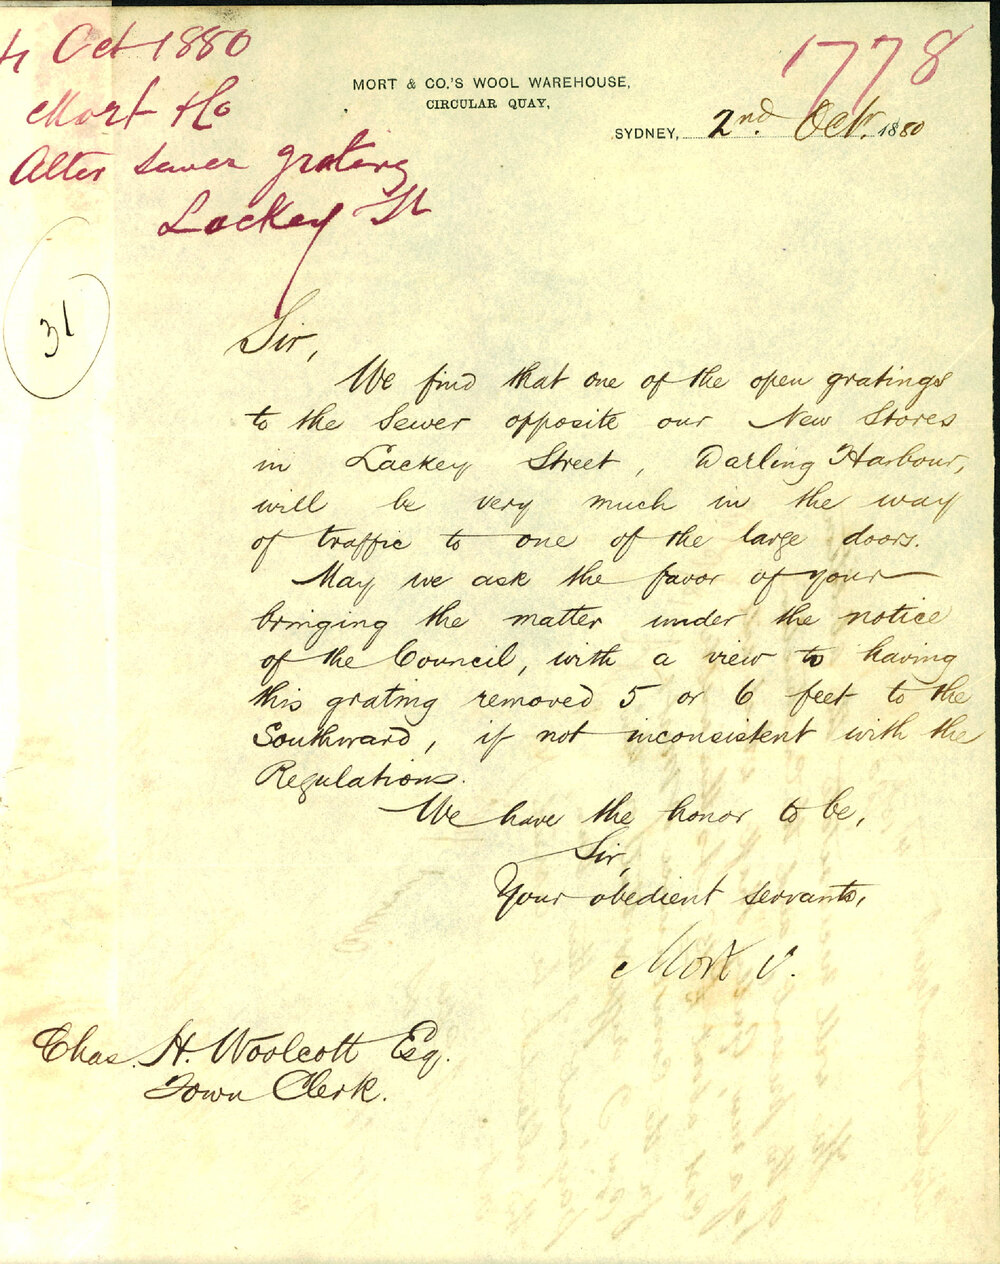 4 Oct 1880
Mort & Co
Alter sewer grating
Lackey St
1778
MORT & CO.'S WOOL WAREHOUSE,
CIRCULAR QUAY,
SYDNEY, 2nd. Octr. 1880
31
Sir,
We find that one of the open gratings
to the Sewer opposite our New Stores
in Lackey Street, Darling Harbour,
will be very much in the way
of traffic to one of the large doors.
May we ask the favor of your
bringing the matter under the notice
of the Council, with a view to having
this grating removed 5 or 6 feet to the
Southward, if not inconsistent with the
Regulations.
We have the honor to be,
Sir,
Your obedient servants,
Mort &
Chas. H. Woolcott Esq.
Town Clerk.